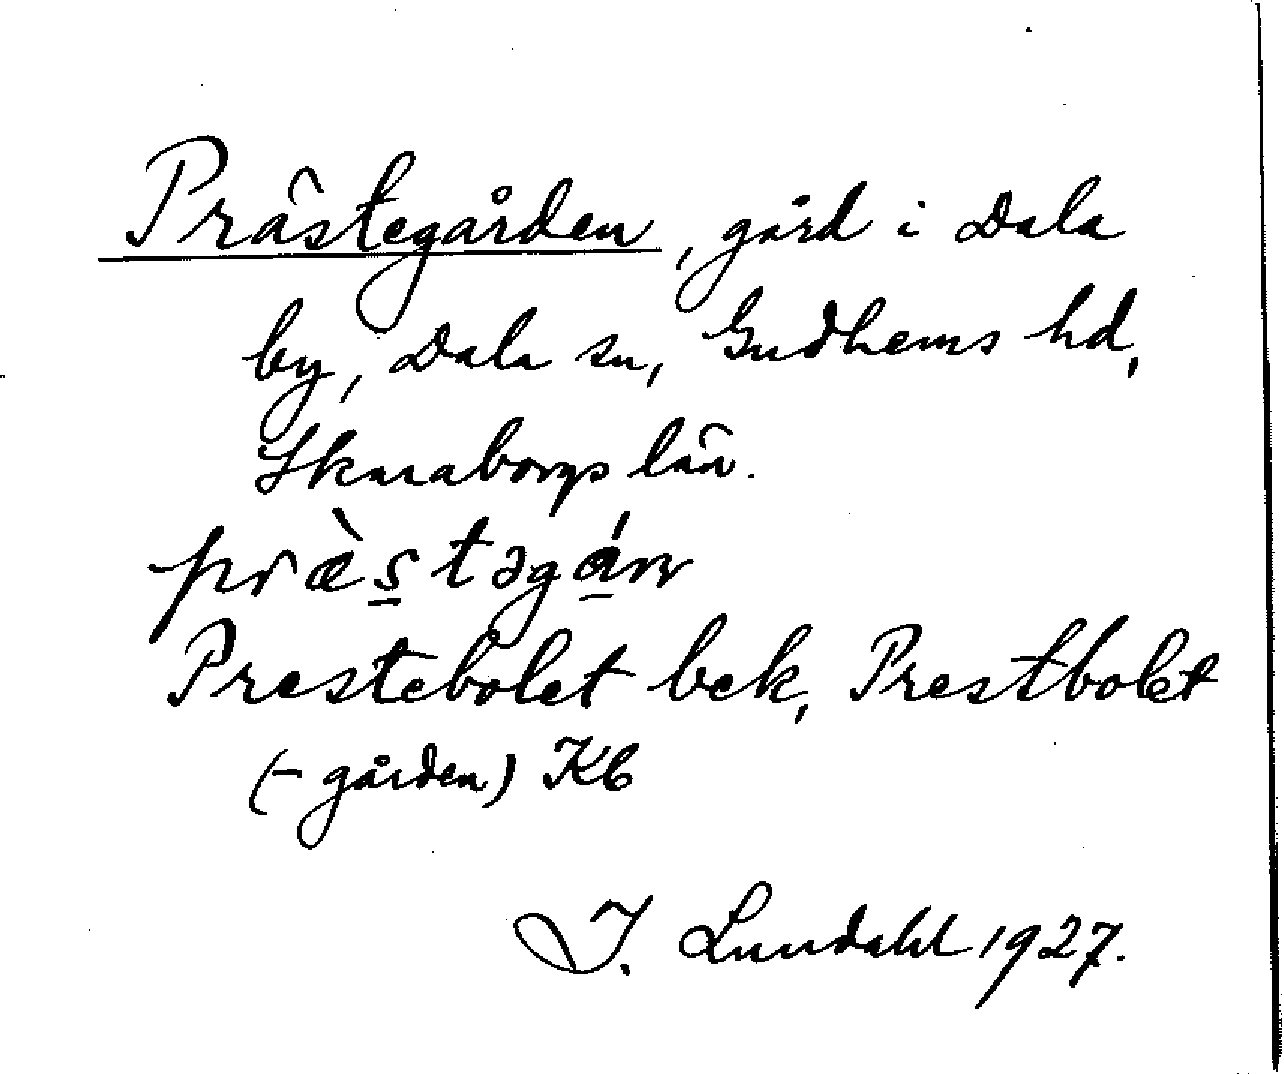 Prästegården, gård i Dala
by, Dala sn, Gudhems hd,
Skaraborgs län.
præ̀s̠təgá̠rn
Prestebolet bek, Prestbolet
(-gården) Kb
I. Lundahl 1927.